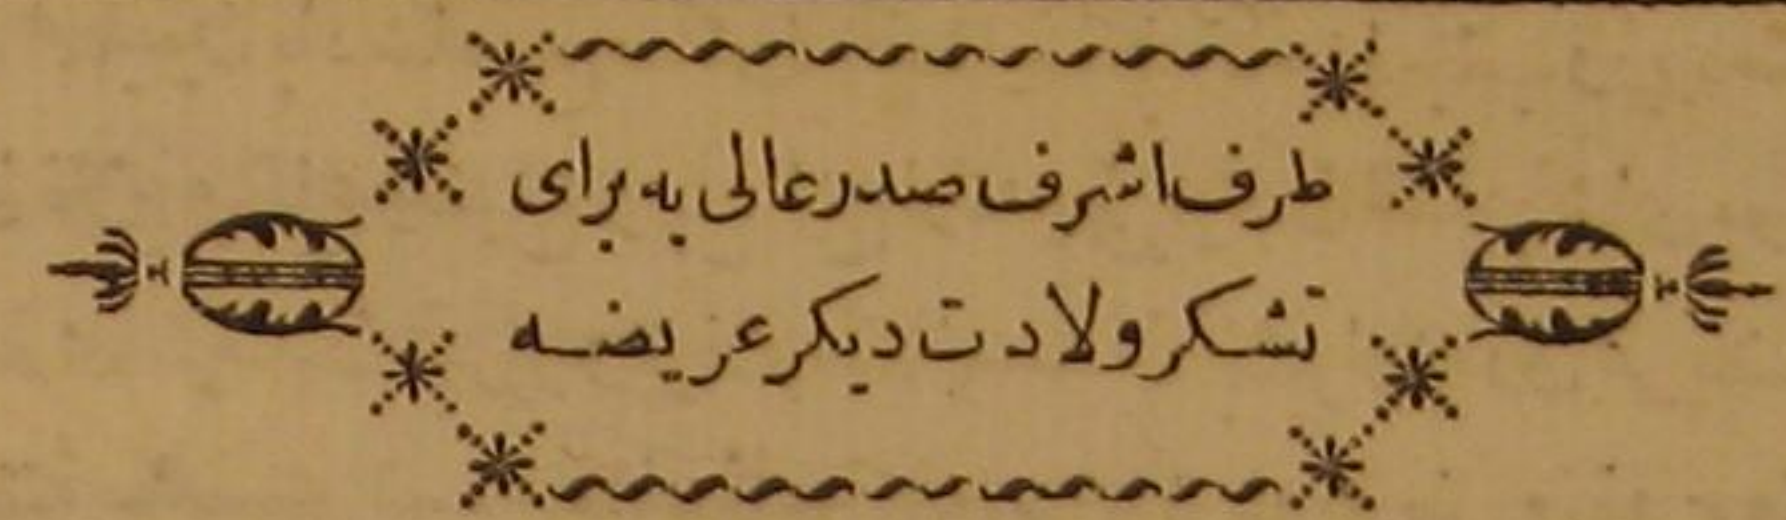 طرف اشرف صدر عالی یه برای
تشکر ولادت دیکر عریضه